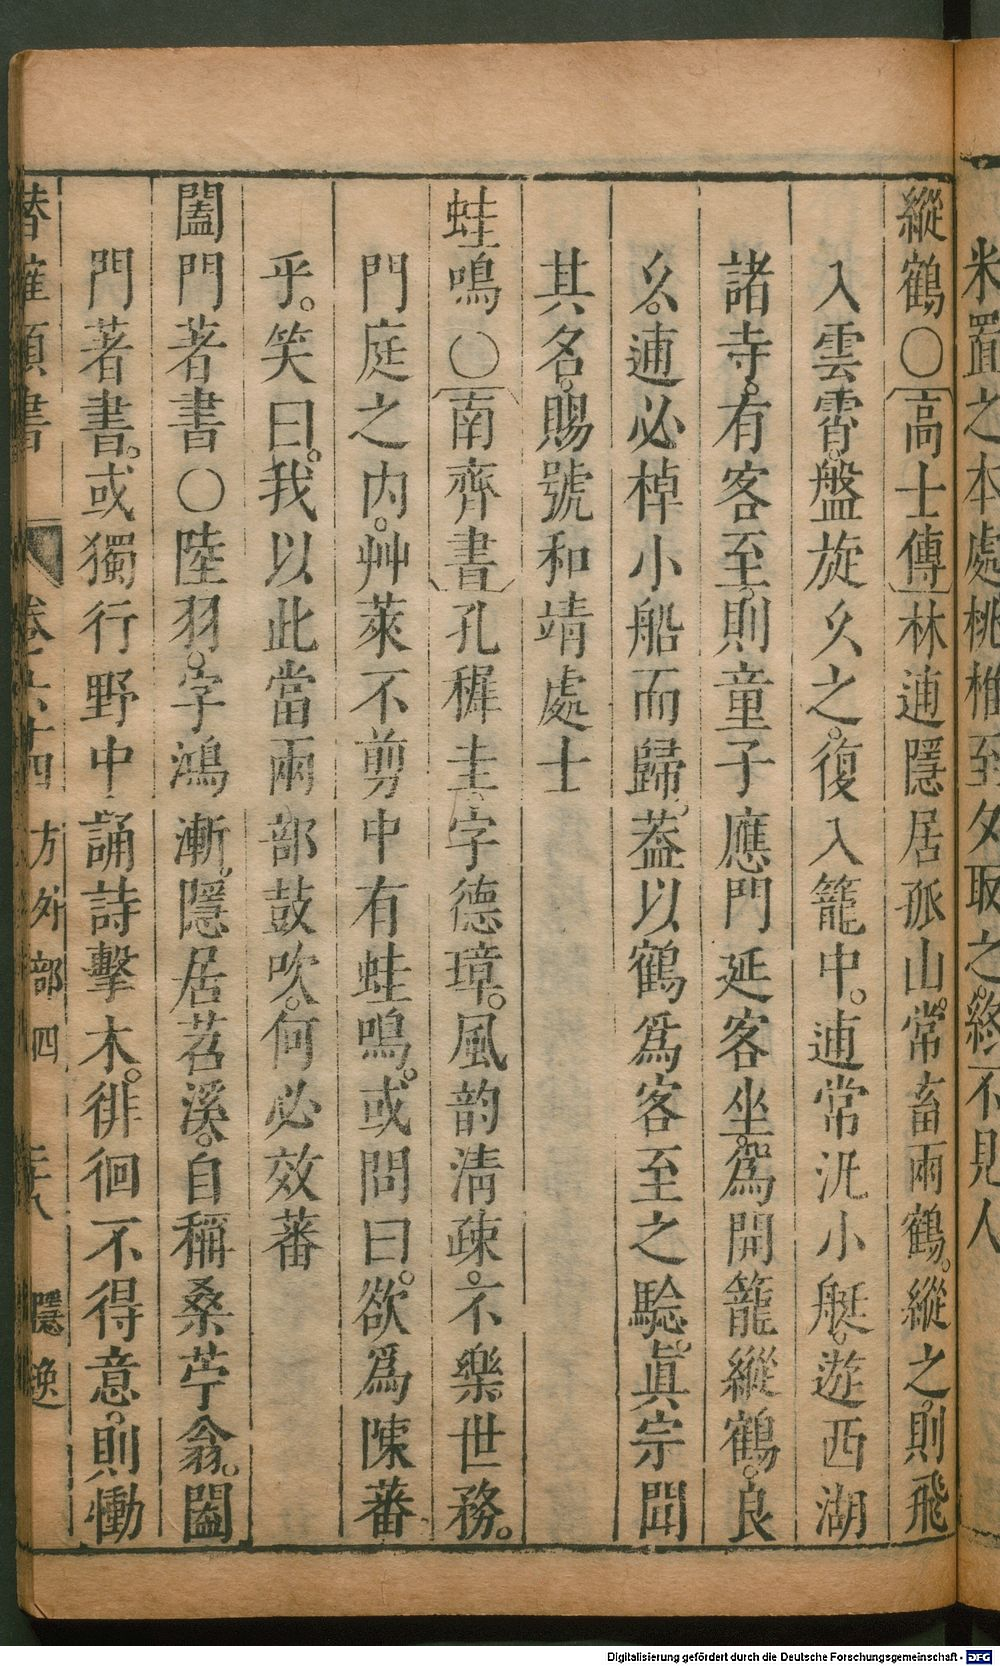 米置之本處桃椎至夕取之。終不見人
縱鶴○〔高士傳〕林逋隱居孤山。常畜兩鶴。縱之。則飛
入雲霄。盤旋久之。復入籠中。逋常汎小艇。遊西湖
諸寺。有客至。則童子應門延客坐。爲開籠縱鶴。良
久。逋必棹小船而歸。葢以鶴爲客至之驗。眞宗聞
其名。賜號和靖處士
蛙鳴○〔南齊書〕孔穉圭。字德璋。風韵淸疎。不樂世務。
門庭之內。艸萊不剪中有蛙鳴。或問曰。欲爲陳蕃
乎。笑曰。我以此當兩部鼓吹。何必效蕃
闔門著書○陸羽。字鴻漸。隱居苕溪。自稱桑苧翁。闔
門著書。或獨行野中。誦詩擊木。徘徊不得意。則慟
潛確類書 卷之六十四 方外部四 二十八 隱逸
Digitalisierung gefördert durch die Deutsche Forschungsgemeinschaft - DFG